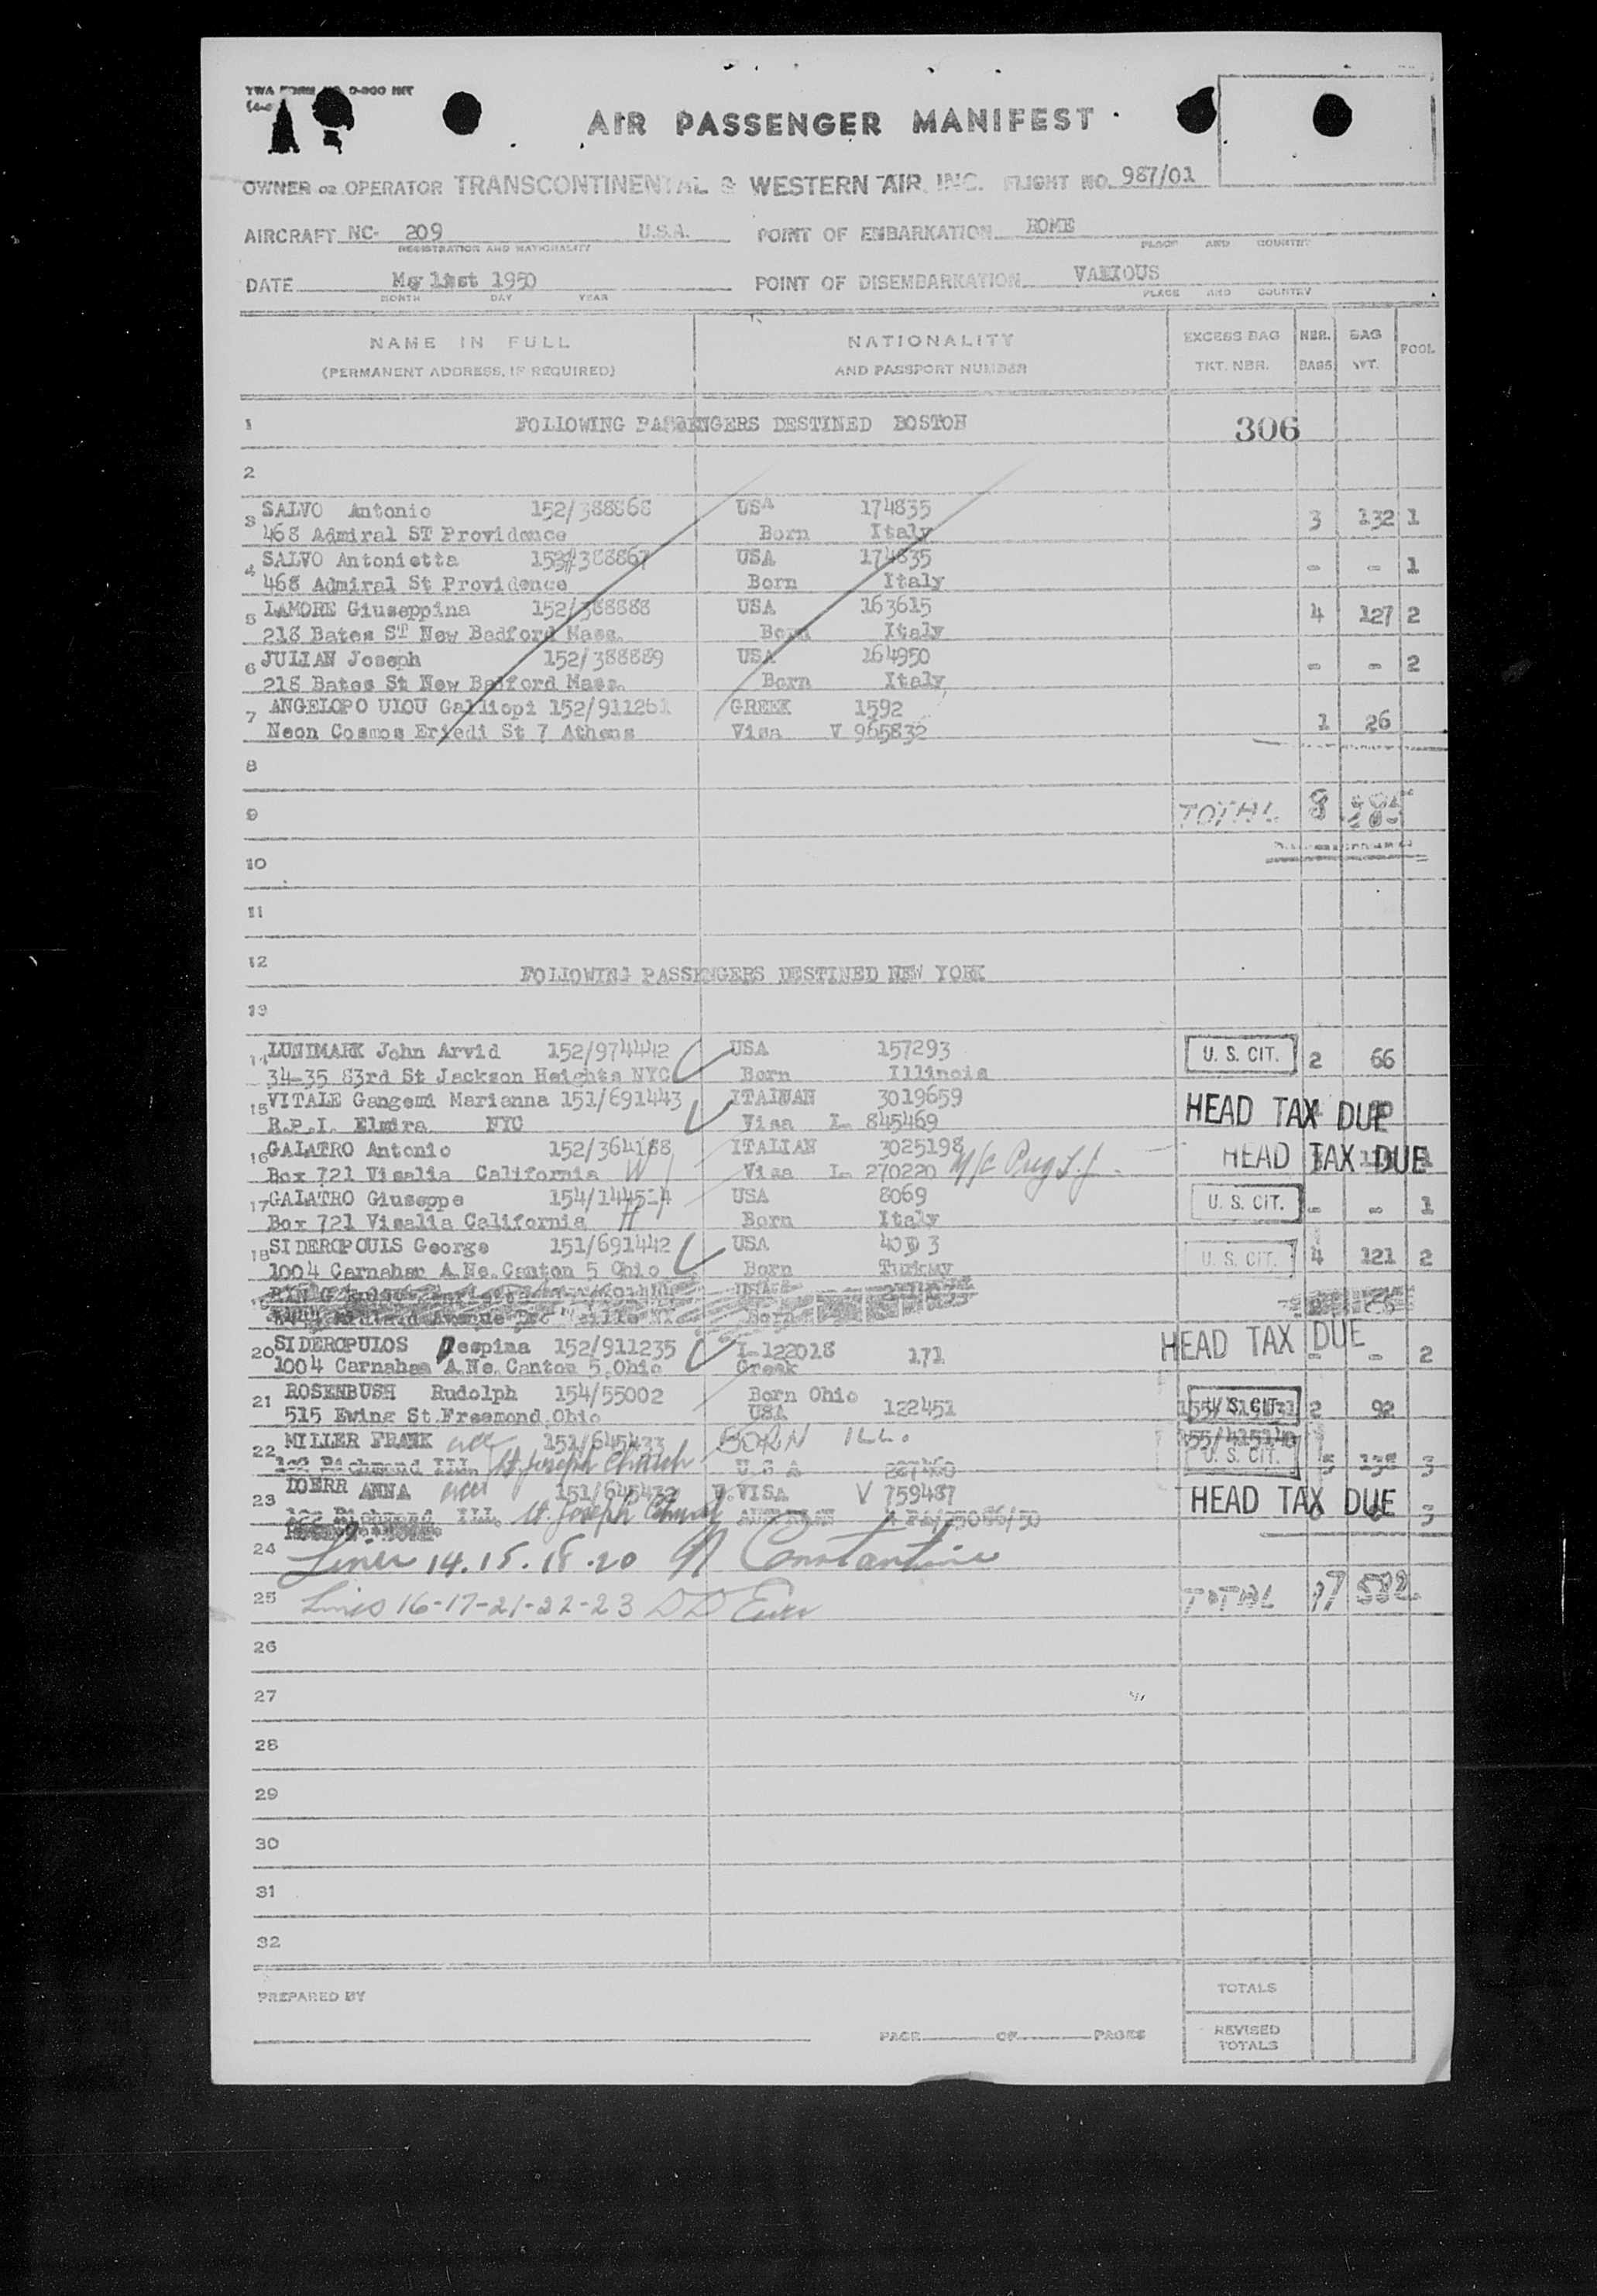 AIR PASSENGER MANIFEST
OWNER OR OPERATOR TRANSCONTINENTAL & WESTERN AIR, INC. FLIGHT NO. 987/01
AIRCRAFT NC- 209 U.S.A. POINT OF EMBARKATION ROME
REGISTRATION AND NATIONALITY PLACE AND COUNTRY
DATE 1st 1950 POINT OF DISEMBARKATION VARIOUS
MONTH DAY YEAR PLACE AND COUNTRY
NAME IN FULL NATIONALITY EXCESS BAG NBR. BAG POOL
(PERMANENT ADDRESS, IF REQUIRED) AND PASSPORT NUMBER TKT. NBR. BAGS WT.
1 FOLLOWING PASSENGERS DESTINED BOSTON 306
2
3 SALVO Antonio 152/388868 USA 174835 3 132 1
468 Admiral ST Providence Born Italy
4 SALVO Antonietta 388867 USA 174835 - - 1
468 Admiral St Providence Born Italy
5 LAMORE Giuseppina 152/388888 USA 163615 4 127 2
218 Bates ST New Bedford Mass. Born Italy
6 JULIAN Joseph 152/388889 USA 164950 - - 2
218 Bates St New Bedford Mass. Born Italy
7 ANGELOPO ULOU Galliopi 152/911261 GREEK 1592 1 26
Neon Cosmos Eriedi St 7 Athens Visa V 965832
8
9 TOTAL 8
10
11
12 FOLLOWING PASSENGERS DESTINED NEW YORK
13
14 LUNDMARK John Arvid 152/974442 USA 157293 U. S. CIT. 2 66
34-35 83rd St Jackson Heights NYC Born Illinois
15 VITALE Gangemi Marianna 151/691443 ITALIAN 3019659 HEAD TAX DUE
R.P.I. Elmira NYC Visa I- 845469
16 GALATRO Antonio 152/364188 ITALIAN 3025198 HEAD TAX DUE 1
Box 721 Visalia California W Visa I- 270220
17 GALATRO Giuseppe USA 8069 U. S. CIT. - - 1
Box 721 Visalia California H Born Italy
18 SIDEROPOULS George 151/691442 USA U. S. CIT. 4 121 2
1004 Carnahan A.Ne. Canton 5 Ohio Born Turkey
20 SIDEROPULOS Despina 152/911235 I-122018 171 HEAD TAX DUE - - 2
1004 Carnahan A.Ne. Canton 5 Ohio Greek
21 ROSENBUSH Rudolph 154/55002 Born Ohio U. S. CIT. 2 92
515 Ewing St. Freemond Ohio USA 122451
22 MILLER FRANK 151/645433 BORN ILL. U. S. CIT. 5 3
Richmond ILL. St. Joseph Church U S A
23 DOERR ANNA VISA V 759487 HEAD TAX DUE 3
Richmond ILL. St. Joseph Church
24 Lines 14. 15. 18. 20 Constantine
25 Lines 16-17-21-22-23 TOTAL 17
26
27
28
29
30
31
32
PREPARED BY TOTALS
PAGE OF PAGES REVISED TOTALS